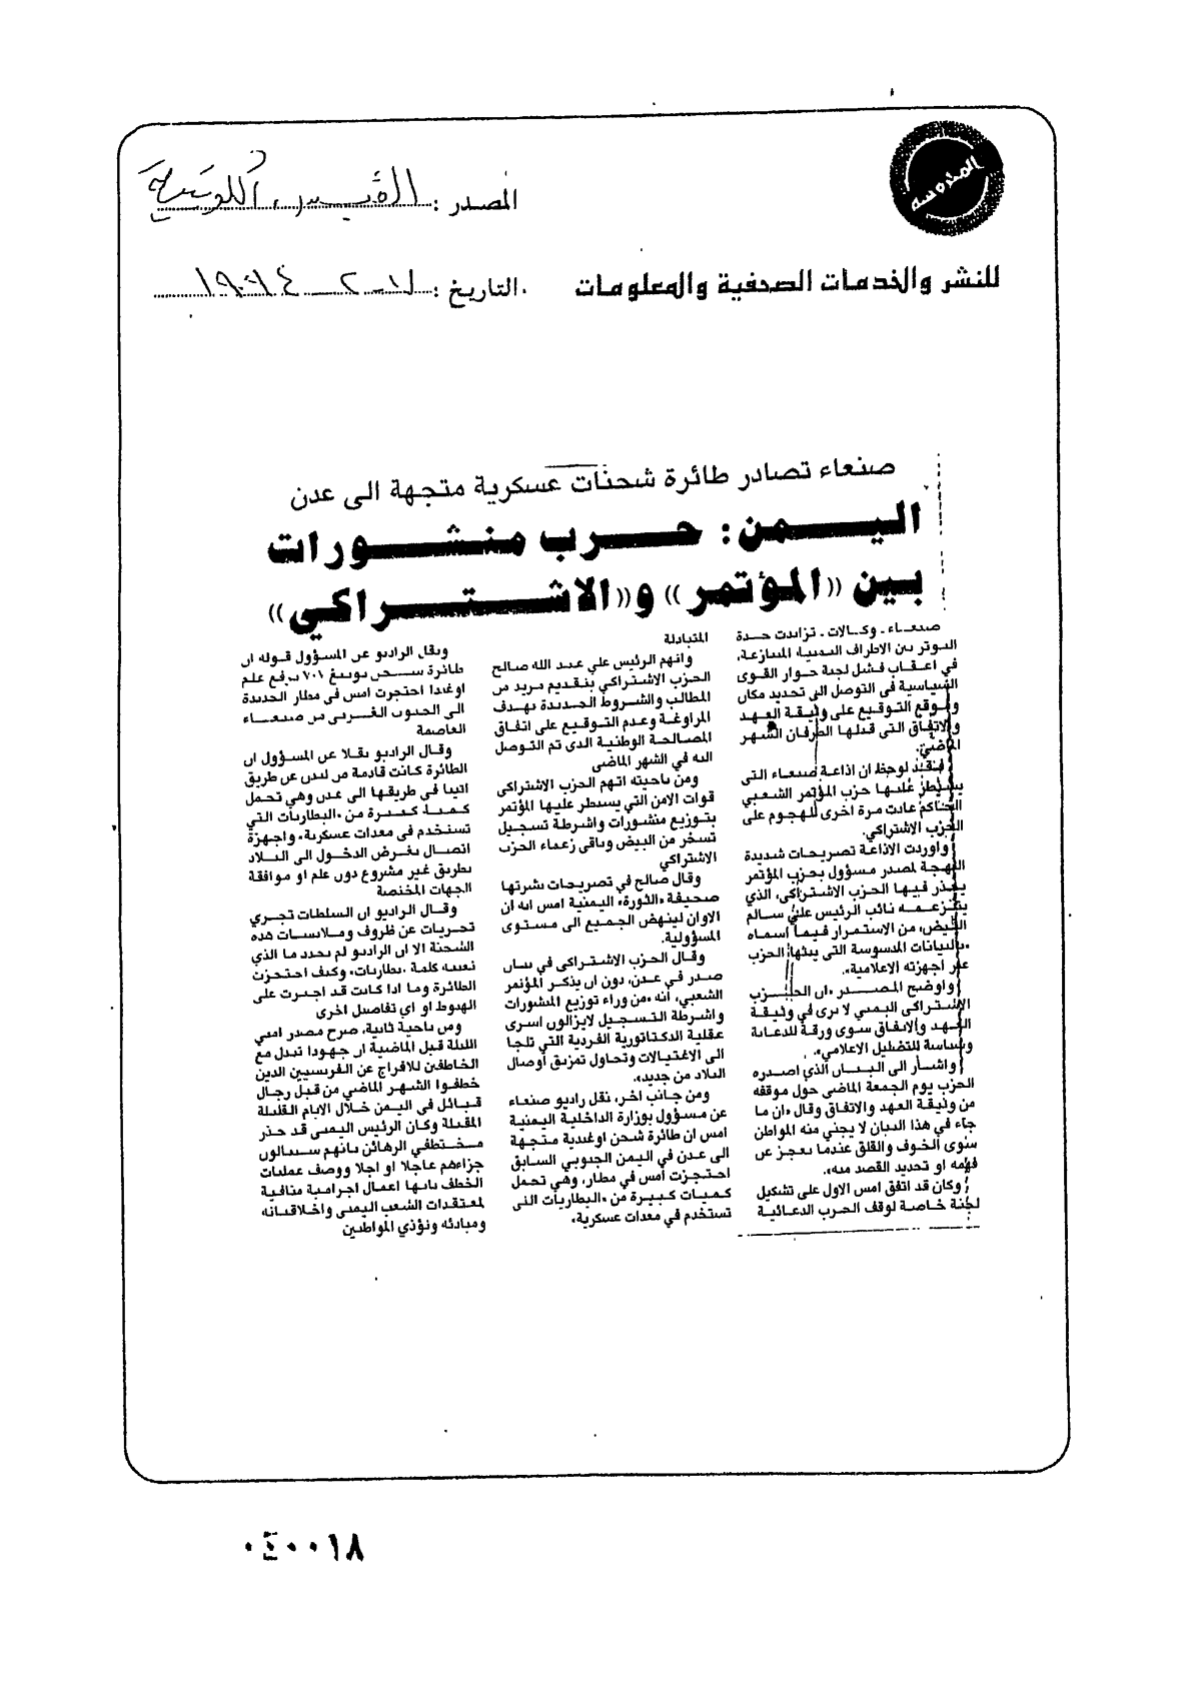 المحروسه
المصدر : القبس الكويتية
للنشر والخدمات الصحفية والمعلومات
التاريخ : ١٩٩٤
صنعاء تصادر طائرة شحنات عسكرية متجهة الى عدن
اليمن: حرب منشورات
بين «المؤتمر» و«الاشتراكي»
صنعاء - وكالات - تزايدت حدة
التوتر بين الاطراف اليمنية المتنازعة،
في اعقاب فشل لجنة حوار القوى
السياسية في التوصل الى تحديد مكان
وموقع التوقيع على وثيقة العهد
والاتفاق التي قبلها الطرفان الشهر
الماضي.
فقد لوحظ ان اذاعة صنعاء التي
يسيطر عليها حزب المؤتمر الشعبي
الحاكم عادت مرة اخرى للهجوم على
الحزب الاشتراكي.
واوردت الاذاعة تصريحات شديدة
اللهجة لمصدر مسؤول بحزب المؤتمر
يحذر فيها الحزب الاشتراكي، الذي
يتزعمه نائب الرئيس علي سالم
البيض، من الاستمرار فيما اسماه
«بالبيانات المدسوسة التي يبثها الحزب
عبر اجهزته الاعلامية».
واوضح المصدر «ان الحزب
الاشتراكي اليمني لا يرى في وثيقة
العهد والاتفاق سوى ورقة للدعاية
وسياسة للتضليل الاعلامي».
واشار الى البيان الذي اصدره
الحزب يوم الجمعة الماضي حول موقفه
من وثيقة العهد والاتفاق وقال «ان ما
جاء في هذا البيان لا يجني منه المواطن
سوى الخوف والقلق عندما يعجز عن
فهمه او تحديد القصد منه».
وكان قد اتفق امس الاول على تشكيل
لجنة خاصة لوقف الحرب الدعائية
المتبادلة
واتهم الرئيس علي عبد الله صالح
الحزب الاشتراكي بتقديم مزيد من
المطالب والشروط الجديدة بهدف
المراوغة وعدم التوقيع على اتفاق
المصالحة الوطنية الذي تم التوصل
اليه في الشهر الماضي
ومن ناحيته اتهم الحزب الاشتراكي
قوات الامن التي يسيطر عليها المؤتمر
بتوزيع منشورات واشرطة تسجيل
تسخر من البيض وباقي زعماء الحزب
الاشتراكي
وقال صالح في تصريحات نشرتها
صحيفة «الثورة» اليمنية امس انه آن
الاوان لينهض الجميع الى مستوى
المسؤولية.
وقال الحزب الاشتراكي في بيان
صدر في عدن، دون ان يذكر المؤتمر
الشعبي، انه «من وراء توزيع المنشورات
واشرطة التسجيل لايزالون اسرى
عقلية الدكتاتورية الفردية التي تلجا
الى الاغتيالات وتحاول تمزيق أوصال
البلاد من جديد».
ومن جانب اخر، نقل راديو صنعاء
عن مسؤول بوزارة الداخلية اليمنية
امس ان طائرة شحن اوغندية متجهة
الى عدن في اليمن الجنوبي السابق
احتجزت أمس في مطار، وهي تحمل
كميات كبيرة من «البطاريات التي
تستخدم في معدات عسكرية»
ونقل الراديو عن المسؤول قوله ان
طائرة شحن بوينغ ٧٠٧ ترفع علم
اوغندا احتجزت امس في مطار الحديدة
الى الجنوب الغربي من صنعاء
العاصمة
وقال الراديو نقلا عن المسؤول ان
الطائرة كانت قادمة من لندن عن طريق
اثينا في طريقها الى عدن وهي تحمل
كميات كبيرة من «البطاريات التي
تستخدم في معدات عسكرية» واجهزة
اتصال بغرض الدخول الى البلاد
بطريق غير مشروع دون علم او موافقة
الجهات المختصة
وقال الراديو ان السلطات تجري
تحريات عن ظروف وملابسات هذه
الشحنة الا ان الراديو لم يحدد ما الذي
تعنيه كلمة «بطاريات» وكيف احتجزت
الطائرة وما اذا كانت قد اجبرت على
الهبوط او اي تفاصيل اخرى
ومن ناحية ثانية، صرح مصدر امني
الليلة قبل الماضية ان جهودا تبذل مع
الخاطفين للافراج عن الفرنسيين الذين
خطفوا الشهر الماضي من قبل رجال
قبائل في اليمن خلال الايام القليلة
المقبلة وكان الرئيس اليمني قد حذر
مختطفي الرهائن بانهم سينالون
جزاءهم عاجلا او اجلا ووصف عمليات
الخطف بانها اعمال اجرامية منافية
لمعتقدات الشعب اليمني واخلاقياته
ومبادئه وتؤذي المواطنين
٠٤٠٠١٨